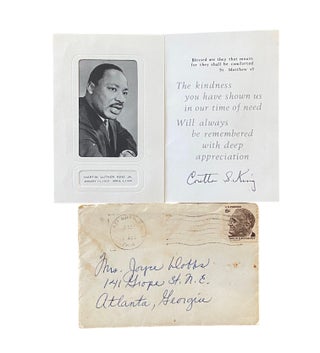 Blessed are they that mourn
for they shall be comforted
St. Matthew v:
The kindness
you have shown us
in our time of need
Will always
be remembered
with deep
appreciation
Coretta S. King
MARTIN LUTHER KING JR.
Mrs. Joyce Dobbs
141 Grape St. N.E.
Atlanta, Georgia